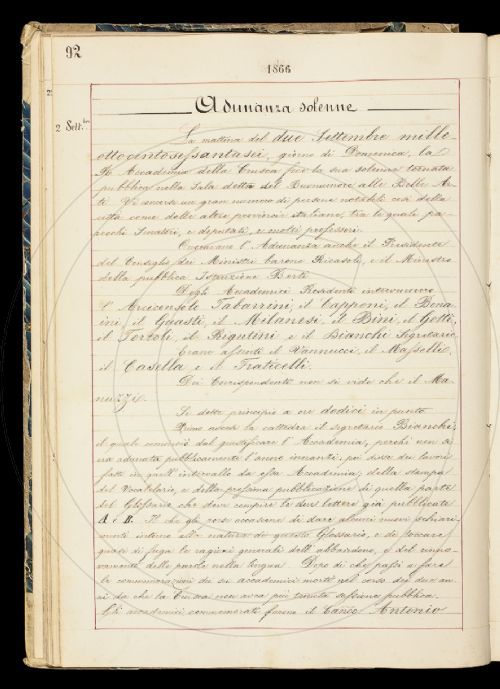 92
1866
Adunanza solenne
2 Sett.bre
La mattina del due Settembre mille-
ottocentosessantasei, giorno di Domenica, la
R. Accademia della Crusca fece la sua solenne tornata
pubblica nella Sala detta del Buonumore alle Belle Ar-
ti. Vi accorse un gran numero di persone notabili così della
città come delle altre provincie italiane, tra le quali pa-
recchi Senatori, e deputati, e molti professori.
Onorarono l'Adunanza anche il Presidente
del Consiglio dei Ministri barone Ricasoli, e il Ministro
della pubblica Istruzione Berti.
Degli Accademici Residenti intervennero
l'Arciconsolo Tabarrini, il Capponi, il Bona-
ini, il Guasti, il Milanesi, il Bini, il Gotti,
il Tortoli, il Rigutini e il Bianchi Segretario
Erano assenti il Vannucci, il Masselli,
il Casella e il Fraticelli.
Dei Corrispondenti non si vide che il Ma-
nuzzi.
Si dette principio a ore dodici in punto
Primo ascese la cattedra il segretario Bianchi,
il quale cominciò dal giustificare l'Accademia, perchè non a-
vea adunata pubblicamente l'anno innanzi; poi disse dei lavori
fatti in quell'intervallo da essa Accademia; della stampa
del Vocabolario, e della prossima pubblicazione di quella parte
del Glossario che deve compire le due lettere già pubblicate
A e B. Il che gli porse occasione di dare alcuni nuovi schiari-
menti intorno alla natura di questo Glossario, e di toccare
quasi di fuga le ragioni generali dell'abbandono, e del rinno-
vamento delle parole nella lingua. Dopo di che passò a fare
le commemorazioni de' suoi accademici morti nel corso dei due an-
ni da che la Crusca non avea più tenuta adunanza pubblica.
Gli accademici commemorati furono il Canco Antonio